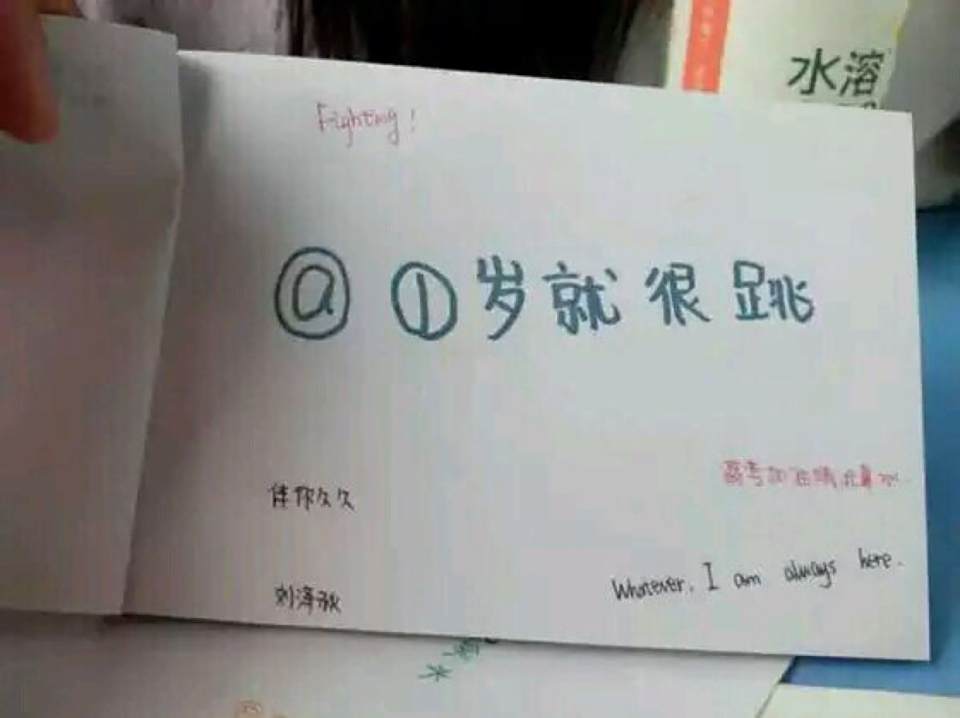 水溶
Fighting!
@ ①岁就很跳
高考加油
伴你久久
Whatever. I am always here.
刘泽秋